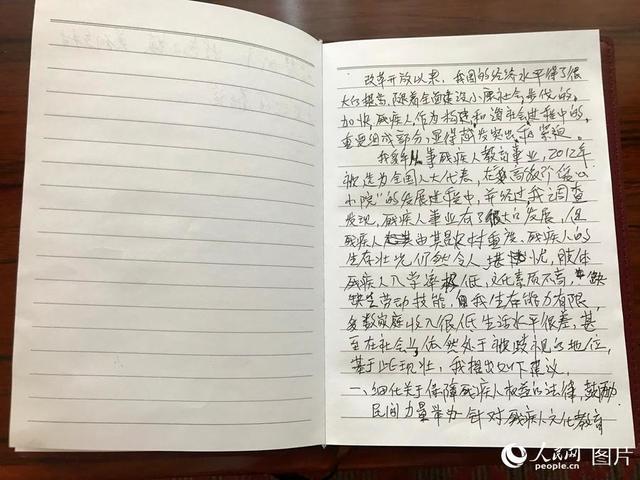 改革开放以来，我国的经济水平得了很
大的提高，随着全面建设小康社会步伐的
加快，残疾人作为构建和谐社会进程中的
重要组成部分，显得越发突出和紧迫。
我多年从事残疾人教育事业，2012年
被选为全国人大代表，在
小院”的发展进程中，并经过我的调查
发现，残疾人事业有了很大的发展，但
残疾人尤其是农村重度残疾人的
生存状况仍然令人堪忧，肢体
残疾人入学率极低，文化素质不高，缺
劳动技能，自我生存能力有限，
多数家庭收入很低生活水平很差，甚
至在社会上依然处于被歧视的地位，
基于此现状，我提出如下建议。
一、细化关于保障残疾人权益的法律，鼓励
民间力量举办针对残疾人文化教育
人民网 图片
people.cn